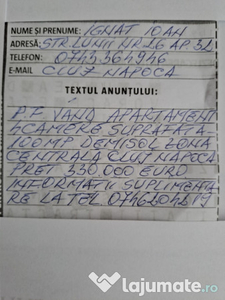 NUME ȘI PRENUME: IGNAT IOAN
ADRESĂ: STR. LUNII NR. 26 AP 32
TELEFON: 0743364946
E-MAIL CLUJ NAPOCA
TEXTUL ANUNȚULUI:
P.F. VAND APARTAMENT
4 CAMERE SUPRAFATA
100MP. DEMISOL ZONA
CENTRALA CLUJ NAPOCA
PRET 330.000 EURO
INFORMATII SUPLIMENTA
RE LA TEL
lajumate.ro